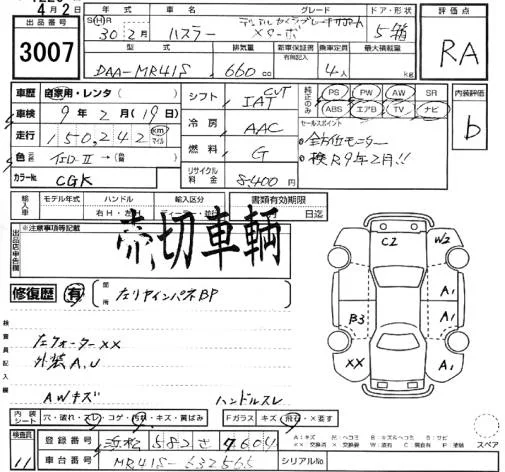 4月2日
出品番号
3007
年式 車名 グレード ドア・形状
S H R 30年2月 ハスラー Xターボ 5 箱
型式 排気量 新車保証書 乗車定員 最大積載量
有無記入
DAA-MR41S 660cc 4人 kg
評価点
RA
車歴 自家用・レンタ( )
車検 9年2月(19日)
走行 150,242 km マイル
色 元色
カラーNo. CGK
シフト CVT IAT
冷房 AAC
燃料 G
リサイクル料金 8,400円
純正のみ
PS PW AW SR
ABS エアB TV ナビ
セールスポイント
全方位モニター
検R9年2月!!
内装評価
b
輸入車 モデル年式 ハンドル 輸入区分
右H・左H ディーラー・並行
書類有効期限
日迄
出品店申告欄 ※注意事項等記載
売切車輌
修復歴 有
箇所 左リヤインパネBP
検査員記入欄
左クォーターXX
外装A,U
AWキズ ハンドルスレ
内装シート 穴・破れ・スレ・コゲ・汚れ・キズ・黄ばみ
Fガラス キズ・飛石・X要す
検査員
11
登録番号 浜松 582 さ 7604
車台番号 MR41S-632565
シリアルNo.
C2
W2
A1
A1
B3
XX
A1
スペア